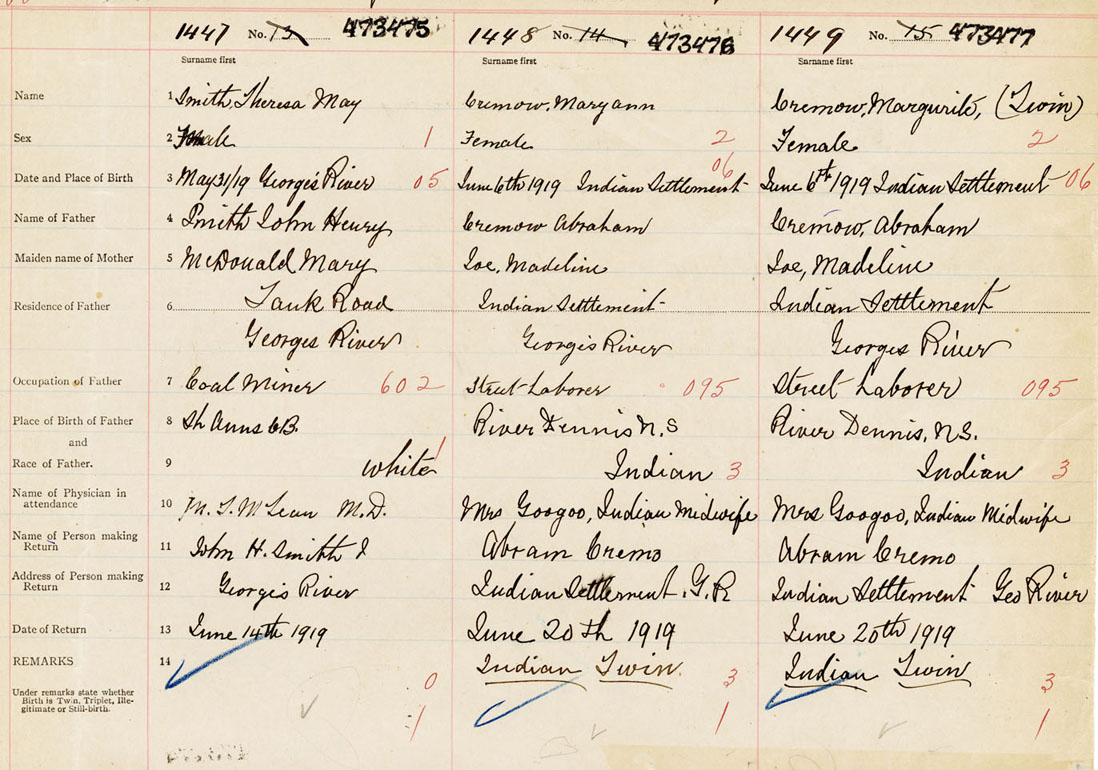 1447 No. 13 473475 1448 No. 14 473476 1449 No. 15 473477
Surname first Surname first Surname first
Name 1 Smith, Theresa May Cremow, Maryann Cremow, Margurite, (Twin)
Sex 2 Female 1 Female 2 Female 2
Date and Place of Birth 3 May 31/19 Georges River 05 June 6th 1919 Indian Settlement 06 June 6th 1919 Indian Settlement 06
Name of Father 4 Smith John Henry Cremow Abraham Cremow, Abraham
Maiden name of Mother 5 McDonald Mary Joe, Madeline Joe, Madeline
Residence of Father 6 Tank Road Indian Settlement Indian Settlement
Georges River Georges River Georges River
Occupation of Father 7 Coal Miner 602 Street Laborer 095 Street Laborer 095
Place of Birth of Father 8 St Anns C.B. River Dennis N.S River Dennis, N.S.
and
Race of Father. 9 white 1 Indian 3 Indian 3
Name of Physician in
attendance 10 M.D. Mrs Googoo, Indian Midwife Mrs Googoo, Indian Midwife
Name of Person making
Return 11 John H. Smith Abram Cremo Abram Cremo
Address of Person making
Return 12 Georges River Indian Settlement. G.R Indian Settlement Geo River
Date of Return 13 June 14th 1919 June 20th 1919 June 20th 1919
REMARKS 14 Indian Twin. Indian Twin
0 3 3
Under remarks state whether
Birth is Twin, Triplet, Ille-
gitimate or Still-birth.
1 1 1